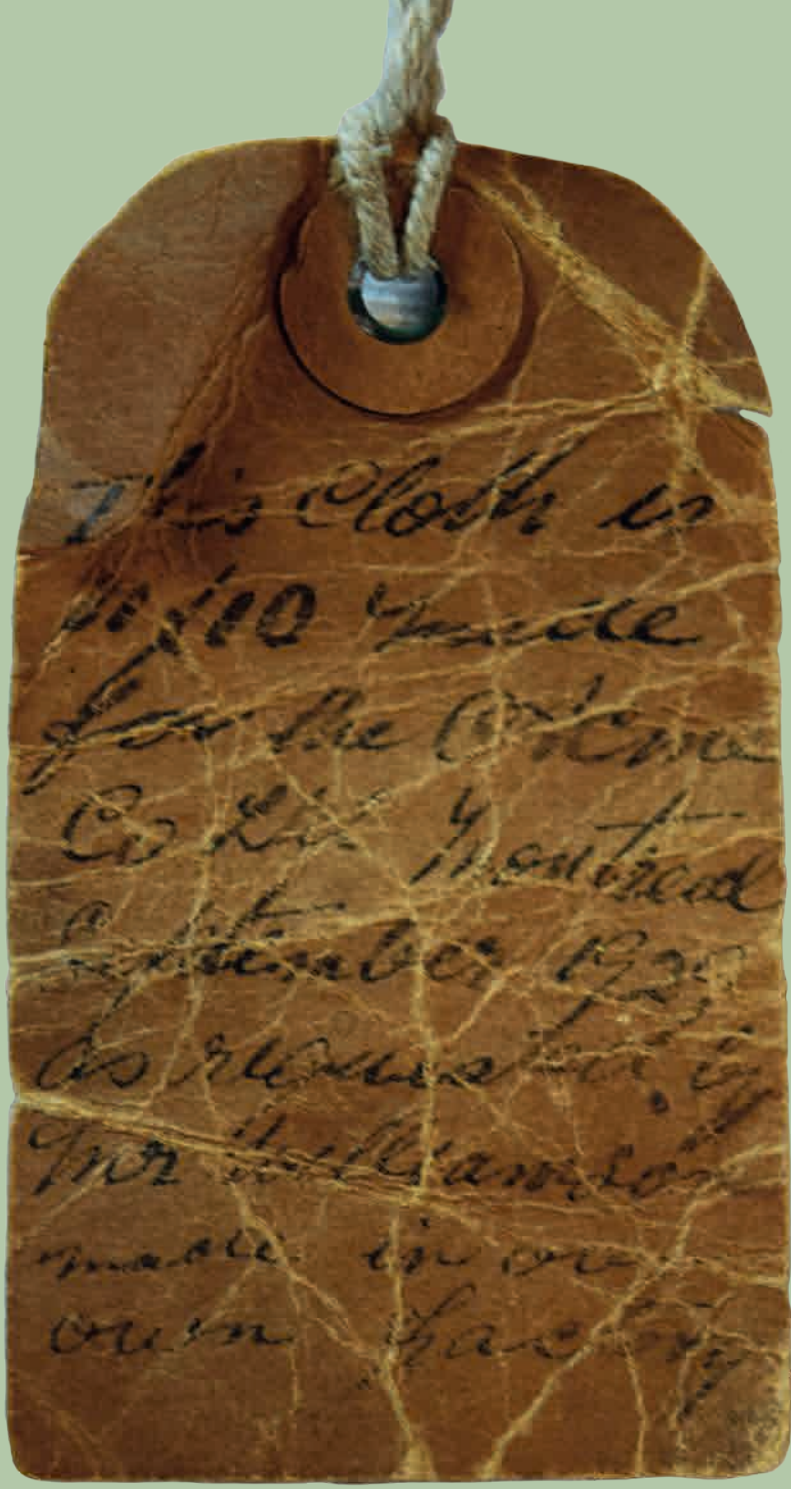 This Cloth is
made
for the
Co Ltd Montreal
September 192
as requested by
Mr Williamson
made in our
own Factory